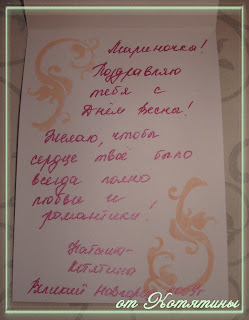 Мариночка!
Поздравляю
тебя с
Днём Весны!
Желаю, чтобы
сердце твоё было
всегда полно
любви и
романтики!
Котятина
Великий Новгород
от Котятины